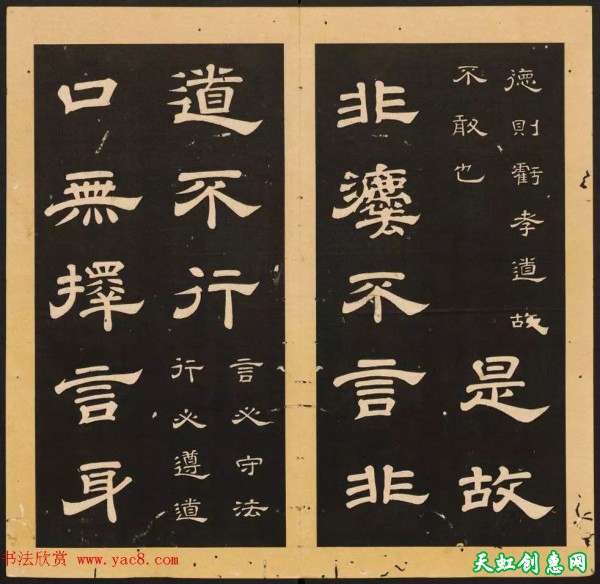 德則虧孝道故
不敢也
是故
非灋不言非
道不行
言必守法
行必遵道
口無擇言身
书法欣赏 www.yac8.com
天虹创惠网